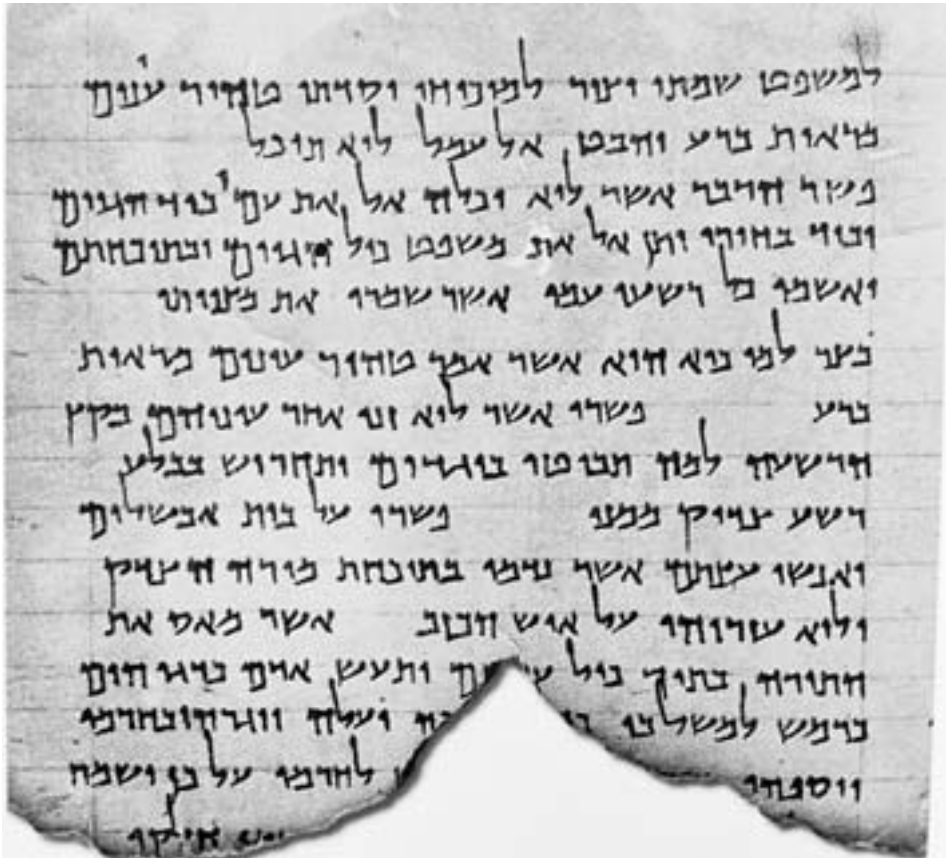 למשפט שמתו וצור למוכיחו יסדתו טהור עינים
מראות ברע והבט אל עמל לוא תוכל
פשר הדבר אשר לוא יכלה אל את עמו ביד הגוים
וביד בחירו יתן אל את משפט כול הגוים ובתוכחתם
יאשמו כל רשעי עמו אשר שמרו את מצוותו
בצר למו כיא הוא אשר אמר טהור עינים מראות
ברע פשרו אשר לוא זנו אחר עיניהם בקץ
הרשעה למה תביטו בוגדים ותחריש בבלע
רשע צדיק ממנו פשרו על בית אבשלום
ואנשי עצתם אשר נדמו בתוכחת מורה הצדק
ולוא עזרוהו על איש הכזב אשר מאס את
התורה בתוך כול ותעש אדם כדגי הים
כרמש למשל בו יעלה ויגרהו בחרמו
ויספהו לחרמו על כן ישמח